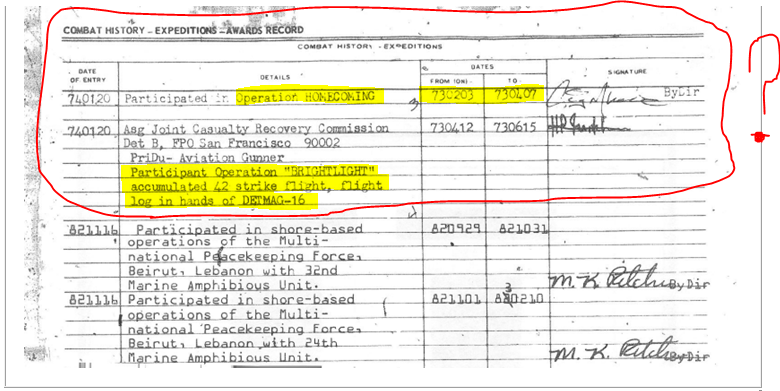 COMBAT HISTORY – EXPEDITIONS – AWARDS RECORD
COMBAT HISTORY - EXPEDITIONS
DATE OF ENTRY DETAILS DATES FROM (ON) TO SIGNATURE
740120 Participated in Operation HOMECOMING 730203 730407 ByDir
740120 Asg Joint Casualty Recovery Commission 730412 730615
Det B, FPO San Francisco 90002
PriDu- Aviation Gunner
Participant Operation "BRIGHTLIGHT"
accumulated 42 strike flight, flight
log in hands of DETMAG-16
821116 Participated in shore-based 820929 821031
operations of the Multi-
national Peacekeeping Force,
Beirut, Lebanon with 32nd
Marine Amphibious Unit. M. K. ByDir
821116 Participated in shore-based 821101 830210
operations of the Multi-
national Peacekeeping Force,
Beirut, Lebanon with 24th
Marine Amphibious Unit. M. K. ByDir
?